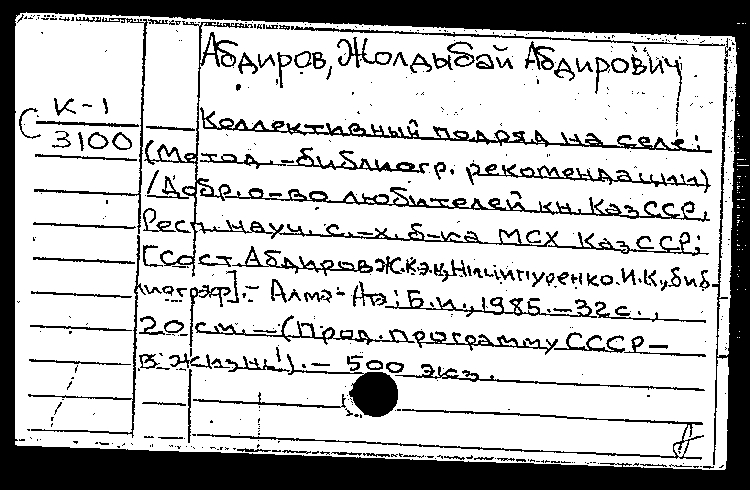 Абдиров, Жолдыбай Абдирович
С К-1
3100
Коллективный подряд на селе:
(Метод.-библиогр. рекомендации)
/Добр. о-во любителей кн. КазССР,
Респ. науч. с.-х. б-ка МСХ КазССР;
[Сост. Абдиров Ж. к.э.н, И.К., биб-
лиограф].- Алма-Ата: Б.и., 1985.-32с.,
20 см.-(Прод. программу СССР-
в жизнь!).- 500 экз.